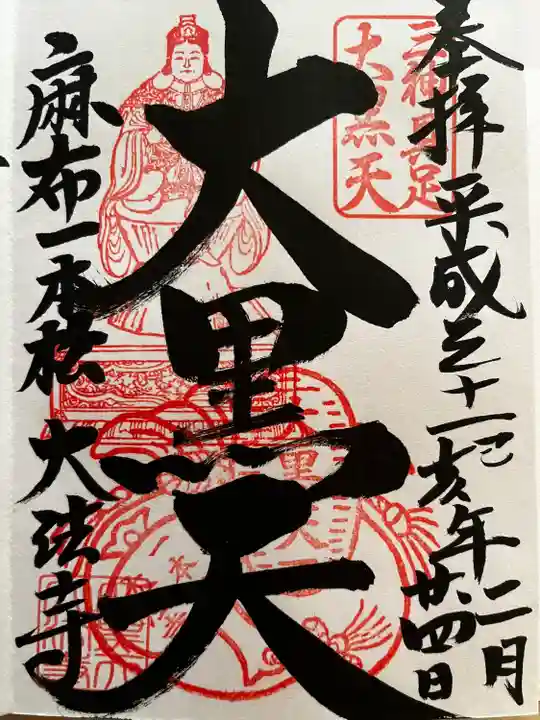 奉拝
平成三十一己亥年二月
廿四日
三神具足
大黒天
大黒天
麻布一本松 大法寺